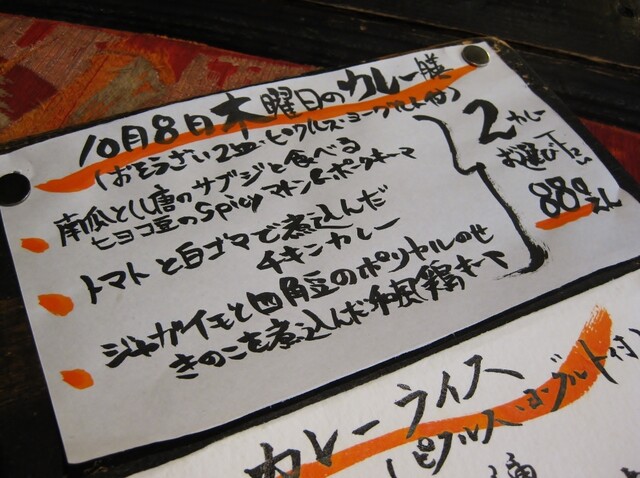 10月8日木曜日のカレー膳
(おそうざい2皿・ピクルス・ヨーグルト付)
南瓜としし唐のサブジと食べる
ヒヨコ豆のSpicyマトン&ポークキーマ
トマトと白ゴマで煮込んだ
チキンカレー
ジャガイモと四角豆のポリヤルのせ
きのこを煮込んだ和風鶏キーマ
2カレー
お選び下さい
880えん
カレーライス
(ピクルス・ヨーグルト付